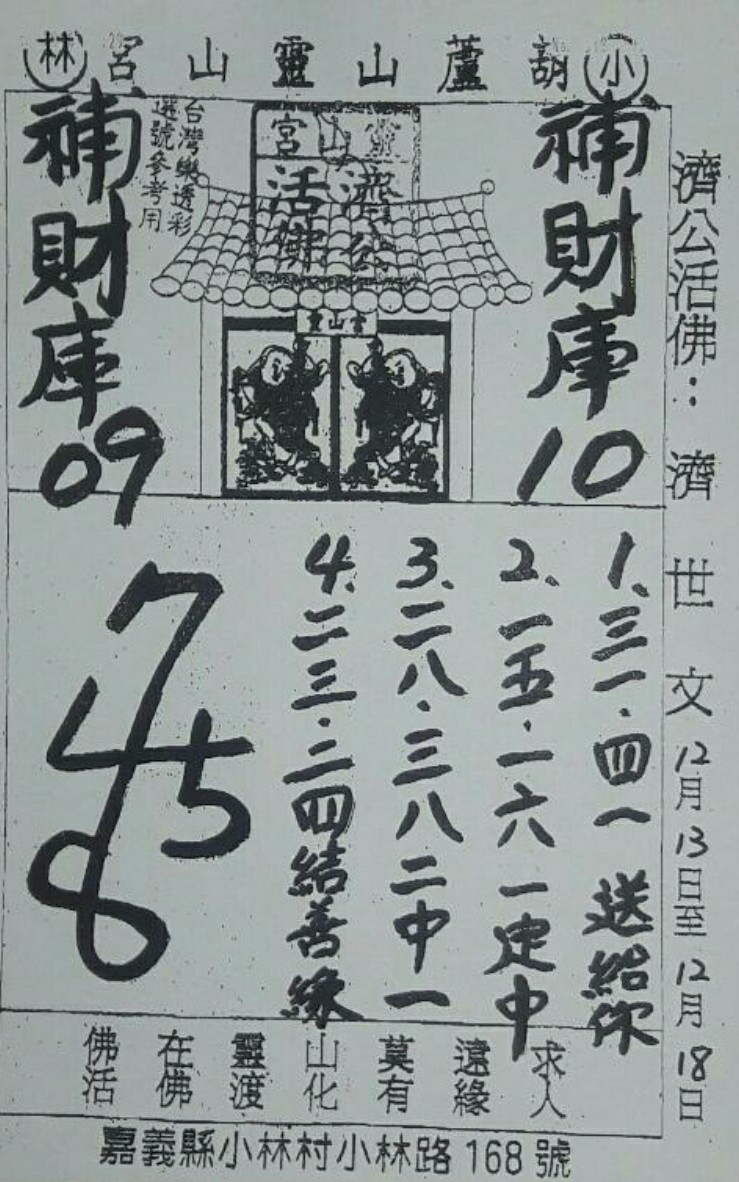 小林
葫蘆山靈山宮
補財庫
10
台灣樂透彩
選號參考用
靈山宮
濟公
活佛
靈山宮
補財庫
09
濟公活佛：濟世文12月13日至12月18日
1、三一、四一送給你
2、一五·一六一定中
3、二八·三八二中一
4、二三·二四結善緣
7
4 5
8
求人
遠緣
莫有
山化
靈渡
在佛
佛活
嘉義縣小林村小林路168號